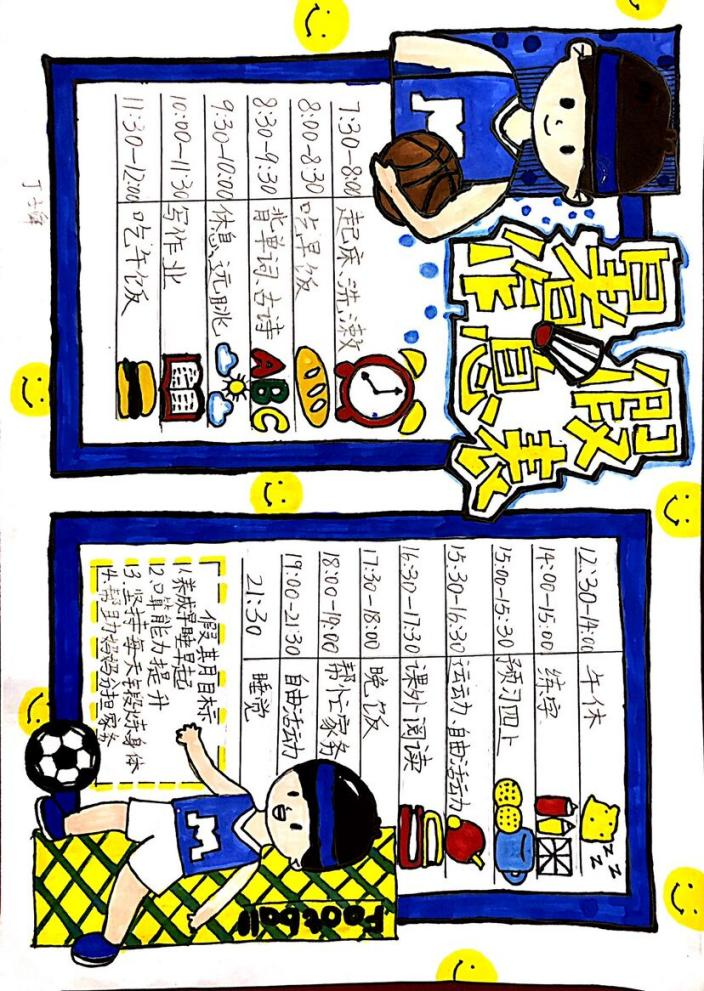 暑假
作息表
M
7:30-8:00 起床、洗漱
8:00-8:30 吃早饭
8:30-9:30 背单词、古诗
9:30-10:00 休息、远眺
10:00-11:30 写作业
11:30-12:00 吃午饭
ABC
12:30-14:00 午休
zzz
14:00-15:00 练字
15:00-15:30 预习四上
15:30-16:30 运动、自由活动
16:30-17:30 课外阅读
17:30-18:00 晚饭
18:00-19:00 帮忙家务
19:00-21:30 自由活动
21:30 睡觉
假期目标
1.养成早睡早起
2.口算能力提升
3.坚持每天锻炼身体
4.帮助妈妈分担家务
M
Football